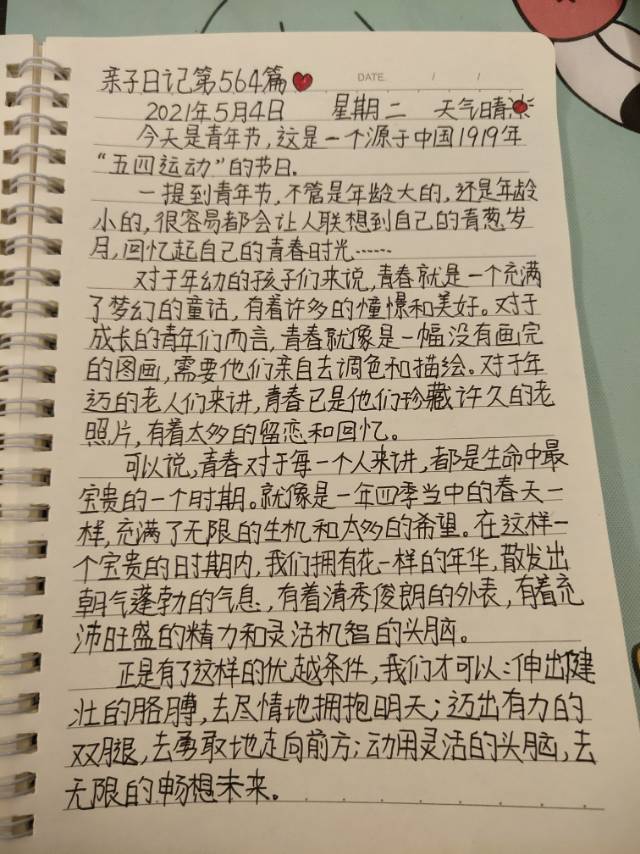 亲子日记第564篇
DATE. / /
2021年5月4日 星期二 天气晴
今天是青年节,这是一个源于中国1919年
“五四运动”的节日.
一提到青年节,不管是年龄大的,还是年龄
小的,很容易都会让人联想到自己的青葱岁
月,回忆起自己的青春时光……
对于年幼的孩子们来说,青春就是一个充满
了梦幻的童话,有着许多的憧憬和美好。对于
成长的青年们而言,青春就像是一幅没有画完
的图画,需要他们亲自去调色和描绘。对于年
迈的老人们来讲,青春已是他们珍藏许久的老
照片,有着太多的留恋和回忆。
可以说,青春对于每一个人来讲,都是生命中最
宝贵的一个时期。就像是一年四季当中的春天一
样,充满了无限的生机和太多的希望。在这样一
个宝贵的时期内,我们拥有花一样的年华,散发出
朝气蓬勃的气息,有着清秀俊朗的外表,有着充
沛旺盛的精力和灵活机智的头脑。
正是有了这样的优越条件,我们才可以:伸出健
壮的胳膊,去尽情地拥抱明天;迈出有力的
双腿,去勇敢地走向前方;动用灵活的头脑,去
无限的畅想未来。